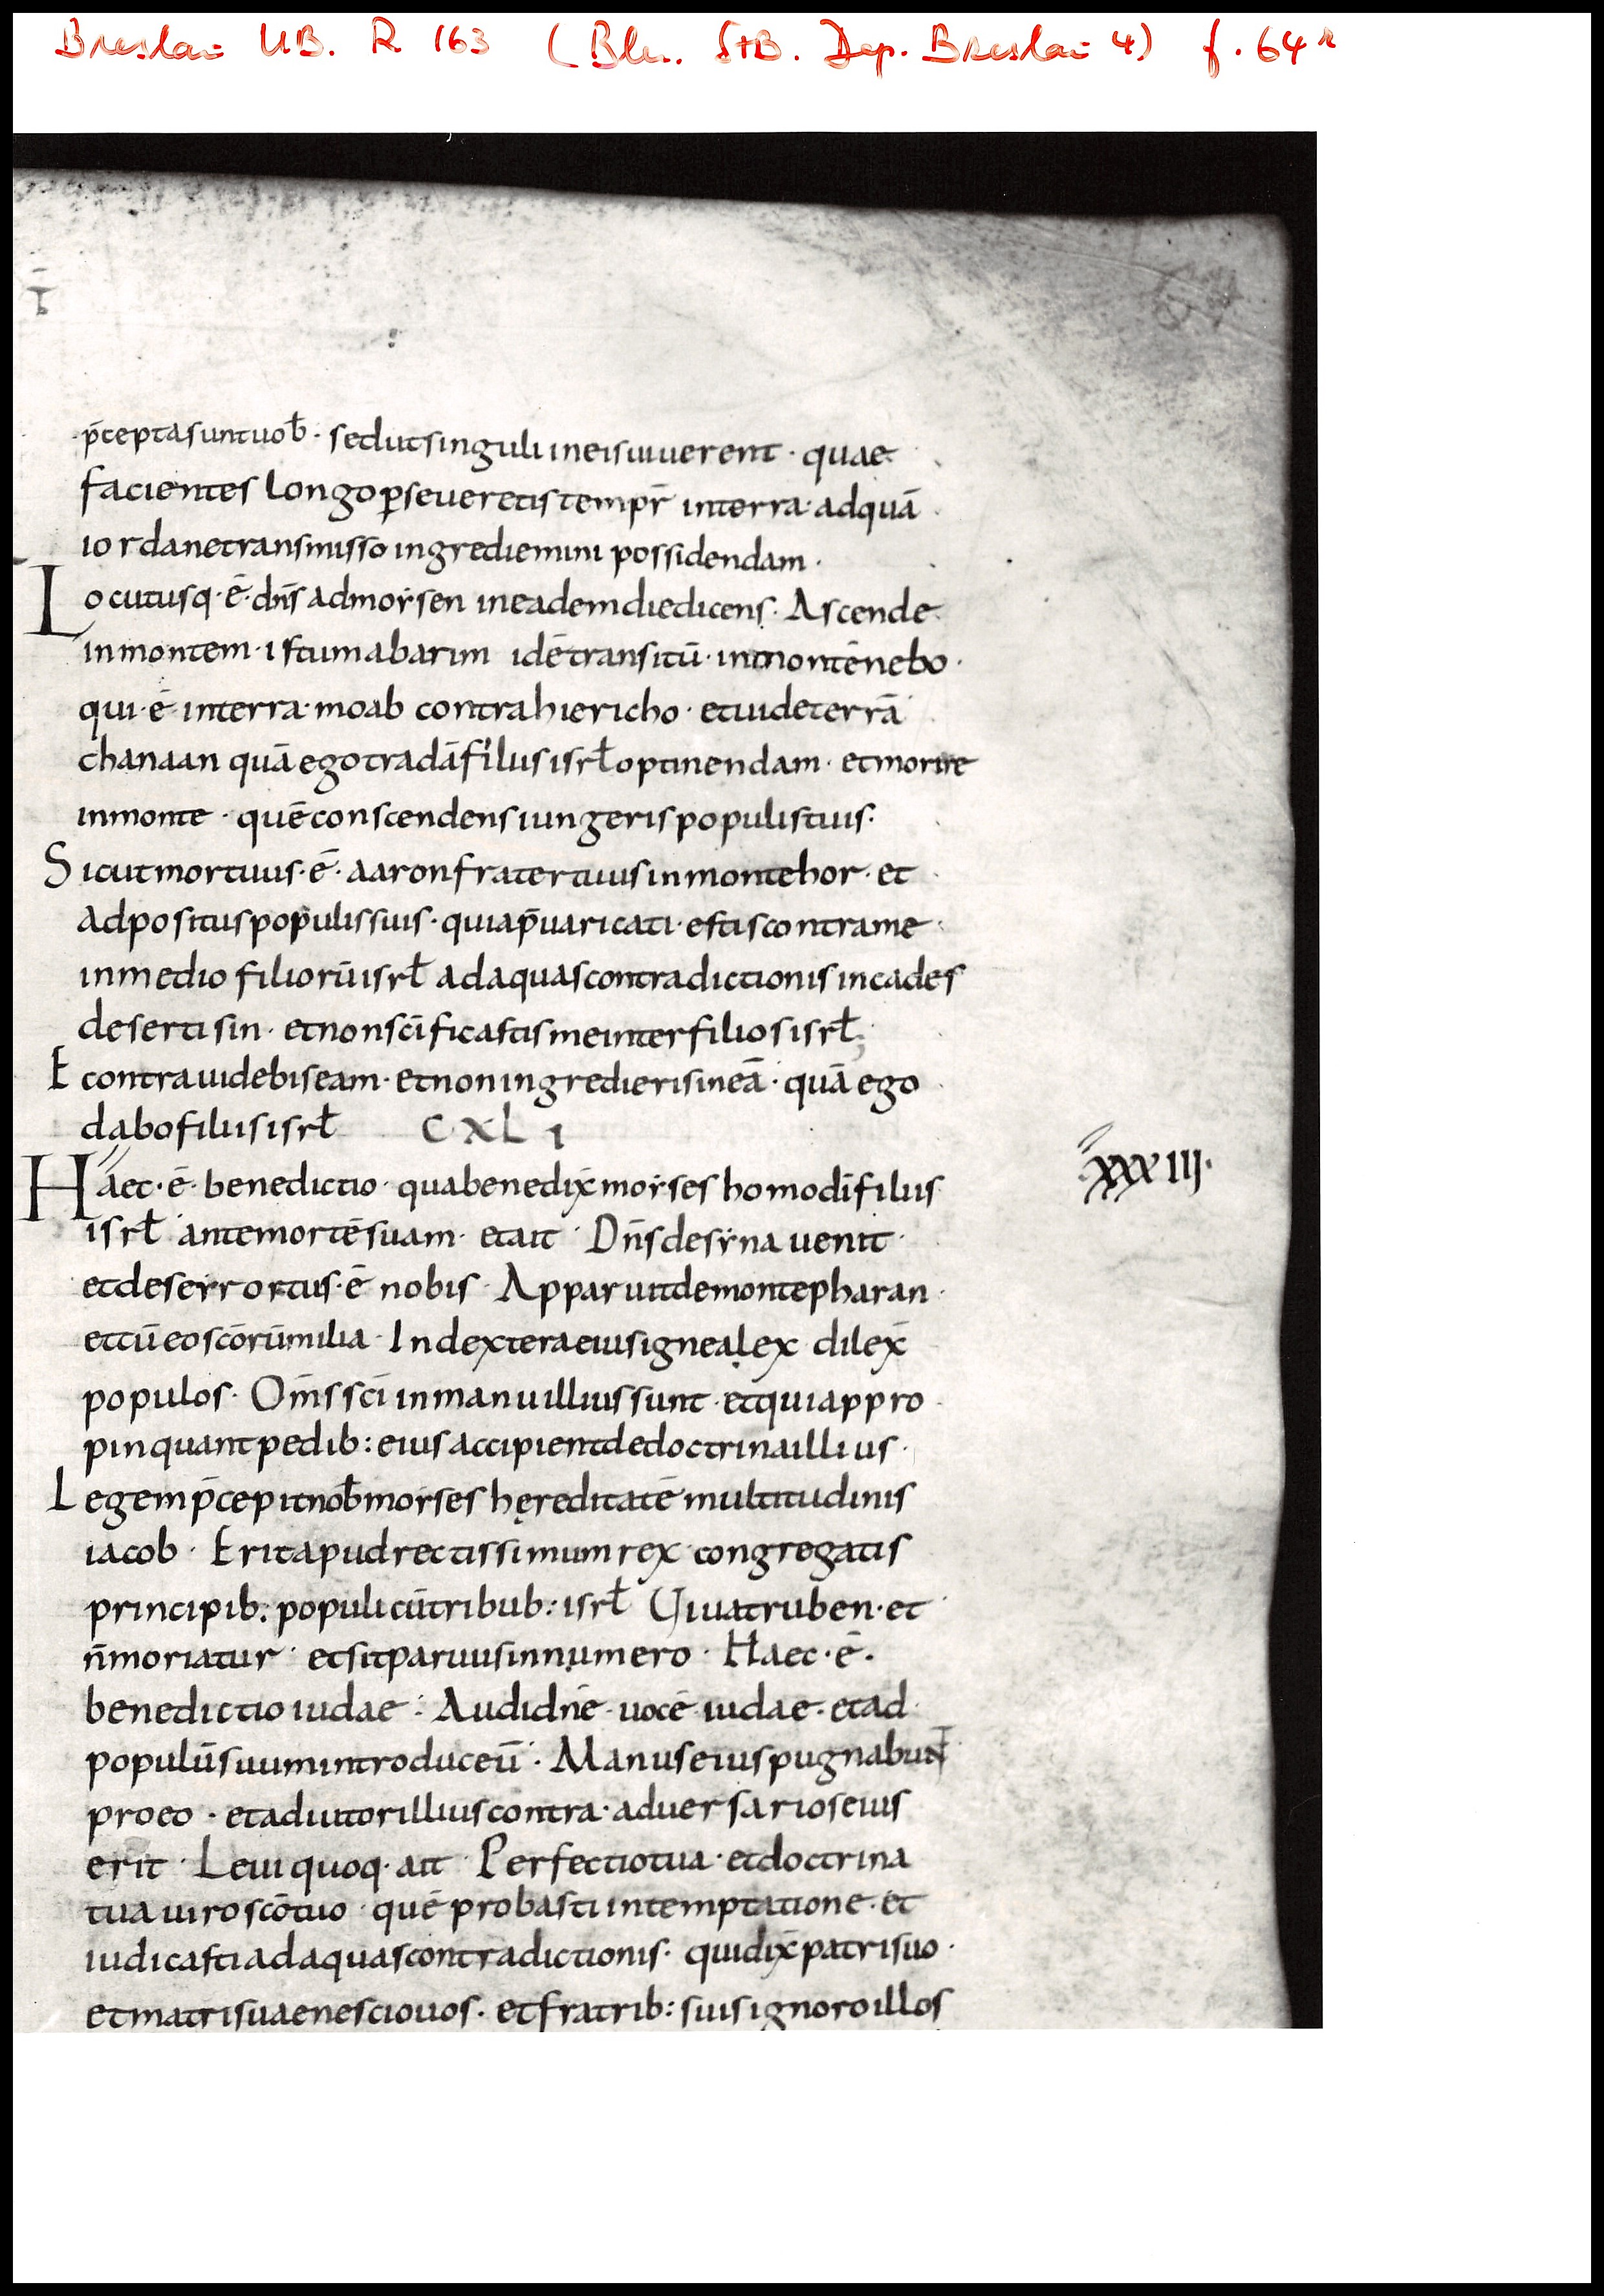 Breslau UB. R 163 (Bln. StB. Dep. Breslau 4) f. 64r
p̄cepta sunt uob̄· sed ut singuli in eis uiuerent · quae
facientes longo ꝑseueretis tempr̄ in terra· ad quā
iordane transmisso ingrediemini possidendam·
Locutusq·ē·dn̄s ad moẏsen in eadem die dicens· Ascende
in montem·istum abarim idē transitū· in montē nebo·
qui·ē· in terra·moab contra hiericho· et uide terrā
chanaan quā ego tradā filiis isrł optinendam· et morire
in monte· quē conscendens iungeris populis tuis·
Sicut mortuus·ē·aaron frater tuus in monte hor·et
adpositus populis suis· quia p̄uaricati·estis contra me·
in medio filiorū isrł ad aquas contradictionis in cades
deserti sin· et non sc̄ificastis me inter filios isrł;
E contra uidebis eam· et non ingredieris in eā· quā ego
dabo filiis isrł CXLI
Haec·ē·benedictio· qua benedix̄ moẏses homo dī filiis XXXIII·
isrł ante mortē suam· et ait· Dn̄s de sẏna uenit·
et de seẏr ortus·ē nobis· Apparuit de monte pharan·
et cū eo sc̄orū milia· In dextera eius ignea lex dilex̄
populos· Om̄s sc̄i in manu illius sunt· et qui appro
pinquant pedib: eius accipient de doctrina illius·
Legem p̄cepit nob̄ moẏses hęreditatē multitudinis
iacob· Erit apud rectissimum rex congregatis
principib: populi cū tribub: isrł Uiuat ruben·et
n̄ moriatur· et sit paruus in numero· Haec·ē·
benedictio iudae: Audi dn̄e·uocē·iudae·et ad
populū suum introduc eū· Manus eius pugnabunt
pro eo· et adiutor illius contra·aduersarios eius
erit· Leui quoq·ait· Perfectio tua·et doctrina
tua uiro sc̄o tuo· quē probasti in temptatione·et
iudicasti ad aquas contradictionis· qui dix̄ patri suo·
et matri suae nescio uos· et fratrib: suis ignoro illos